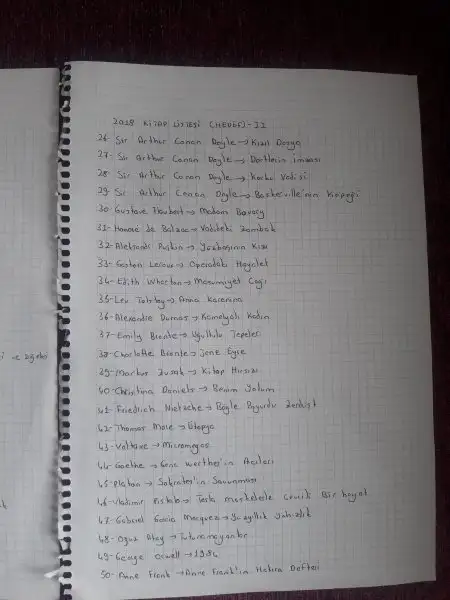 2018 KİTAP LİSTESİ (HEDEF)-II
26- Sir Arthur Conan Doyle → Kızıl Dosya
27- Sir Arthur Conan Doyle → Dörtlerin İmzası
28- Sir Arthur Conan Doyle → Korku Vadisi
29- Sir Arthur Conan Doyle → Baskerville'nin Köpeği
30- Gustave Flaubert → Madam Bovary
31- Honoré de Balzac → Vadideki Zambak
32- Aleksandr Puşkin → Yüzbaşının Kızı
33- Gaston Leroux → Operadaki Hayalet
34- Edith Wharton → Masumiyet Çağı
35- Lev Tolstoy → Anna Karenina
36- Alexandre Dumas → Kamelyalı Kadın
37- Emily Bronte → Uğultulu Tepeler
38- Charlotte Bronte → Jane Eyre
39- Markus Zusak → Kitap Hırsızı
40- Christina Daniels → Benim Yolum
41- Friedrich Nietzche → Böyle Buyurdu Zerdüşt
42- Thomas More → Ütopya
43- Voltaire → Micromegas
44- Goethe → Genç Werther'in Acıları
45- Platon → Sokrates'in Savunması
46- Vladimir → Tersi Bir hayat
47- Gabriel Garcia Marquez → Yüzyıllık Yalnızlık
48- Oğuz Atay → Tutunamayanlar
49- George Orwell → 1984
50- Anne Frank → Anne Frank'ın Hatıra Defteri